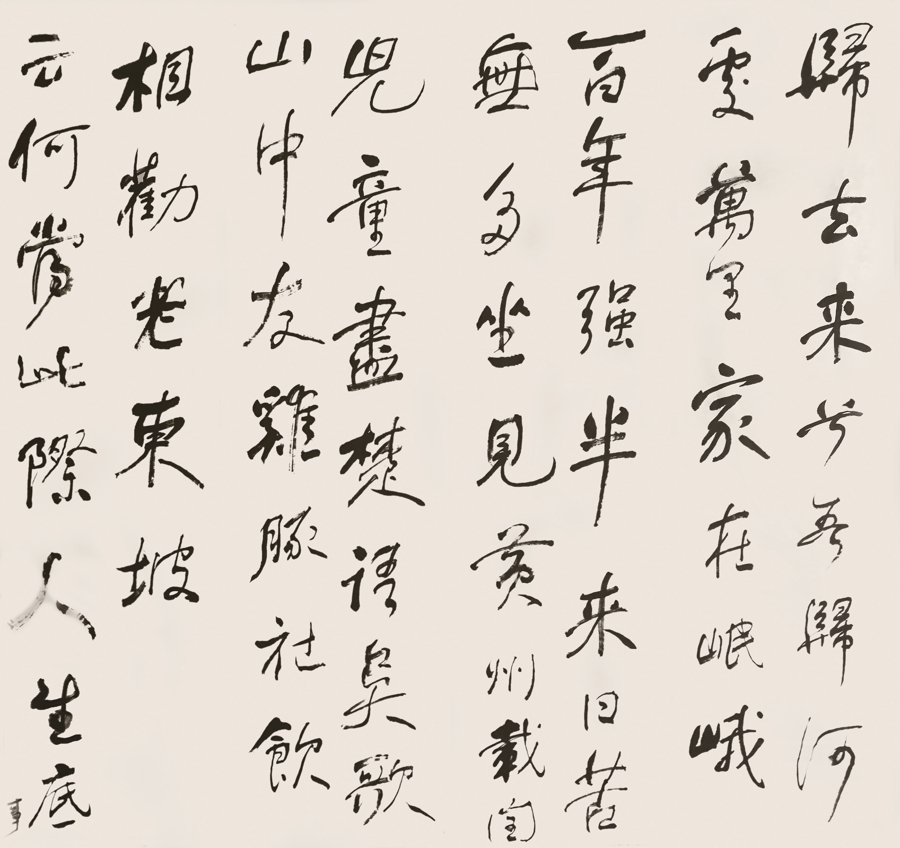 歸去来兮吾歸何
處萬里家在岷峨
百年强半来日苦
無多坐見黄州載閏
兒童盡楚語吳歌
山中友雞豚社飲
相勸老東坡
云何當此際人生底
事